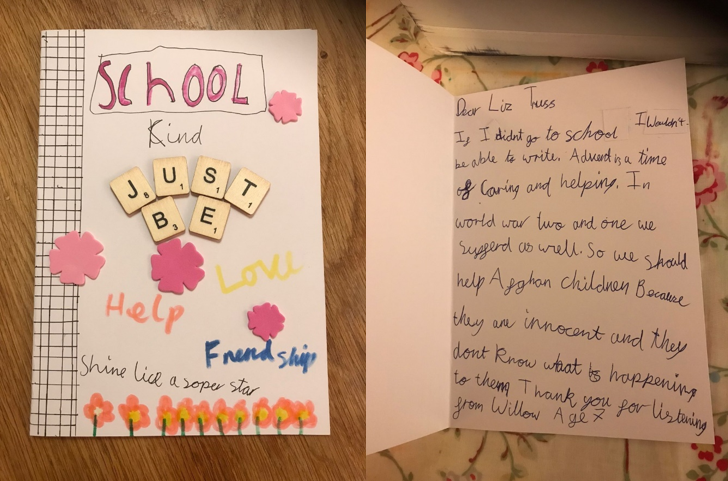 SCHOOL
Kind
JUST
BE
Love
Help
Friendship
Shine lick a soper star
Dear Liz Truss
If I didnt go to school I Wouldn't
be able to write. Advent is a time
of Caring and helping. In
world war two and one we
sufferd as well. So we should
help Afghan children Because
they are innocent and they
dont Know what is happening
to them Thank you for listening
from Willow Age 7